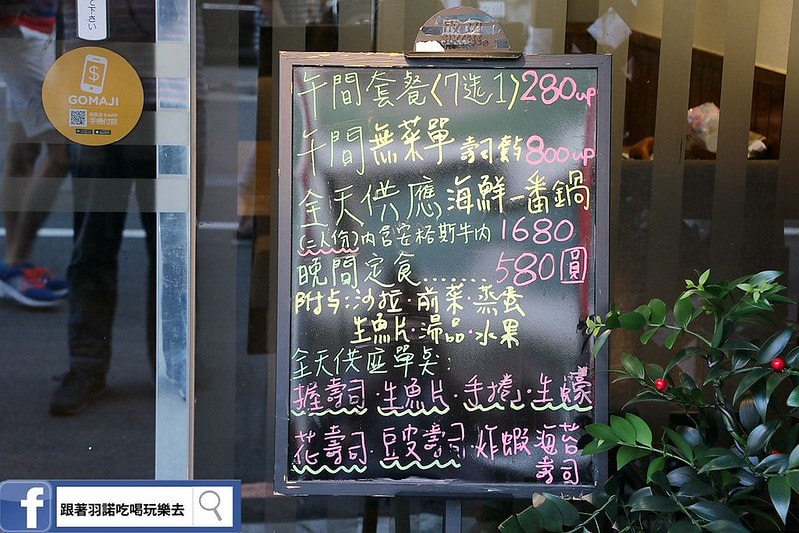 て下さい
GOMAJI
午間套餐〈7选1〉280up
午間無菜單 壽司 800up
全天供應海鮮一番鍋
(二人份)內含安格斯牛肉 1680
晚間定食……580圓
附与:沙拉·前菜·蒸蛋
生魚片·湯品·水果
全天供應單点:
握壽司·生魚片·手捲·生蠔
花壽司·豆皮壽司·炸蝦海苔
壽司
跟著羽諾吃喝玩樂去